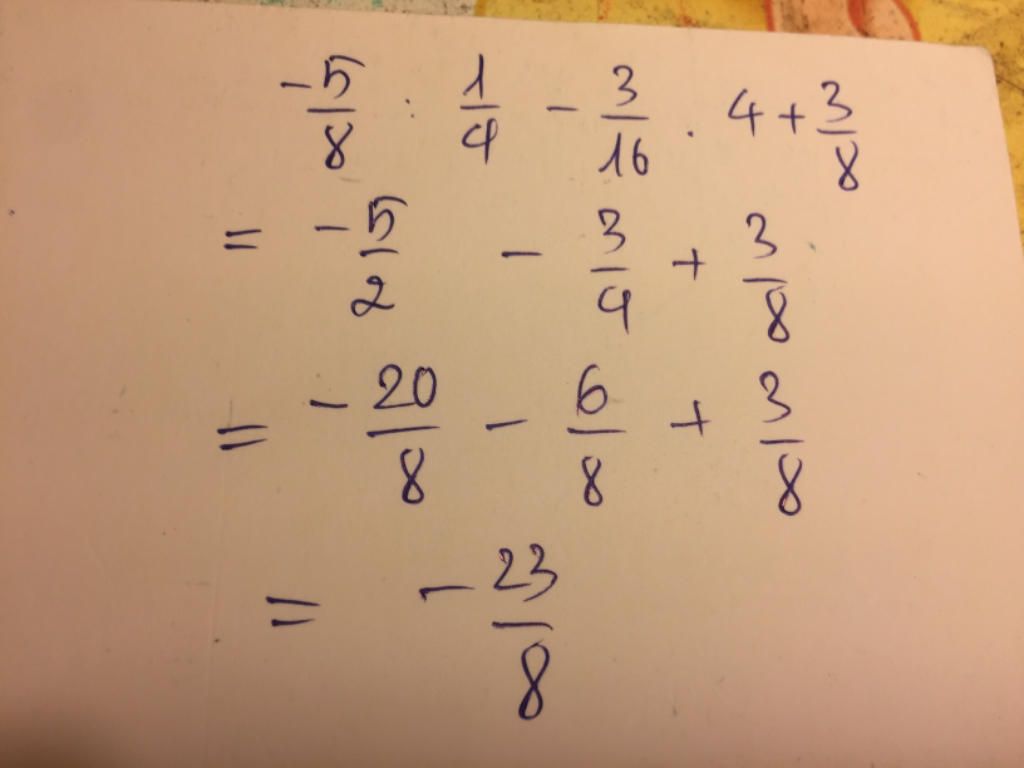 -5/8 : 1/4 - 3/16 . 4 + 3/8
= -5/2 - 3/4 + 3/8
= - 20/8 - 6/8 + 3/8
= - 23/8